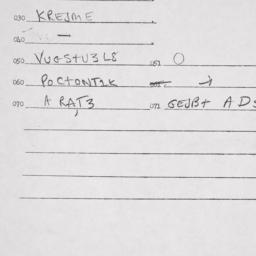 030 KREJME
040
050 VUGSTU3L8 051 O
060 POCTONT1K →
070 A RAT3 071 GEJB+ A D